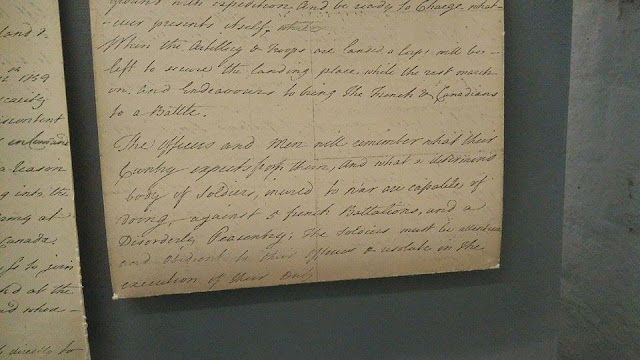 land &
1759
discontent
in Canada
a reason
g into the
Canada.
to join
d at the
directly to
ground with expedition and be ready to Charge what-
-ever presents itself,
When the Artillery & Troops are landed a Corps will be
left to secure the landing place, while the rest march
on, and Endeavours to bring the French & Canadians
to a Battle.
The officers and Men will remember what their
Cuntry expects from them, and what a determind
body of Soldiers, inured to war are capables of
doing, against 5 french Battalions, and a
Disorderly Peasentry; The Soldiers must be attentive
and obedient to their Officers & in the
execution of their Duty